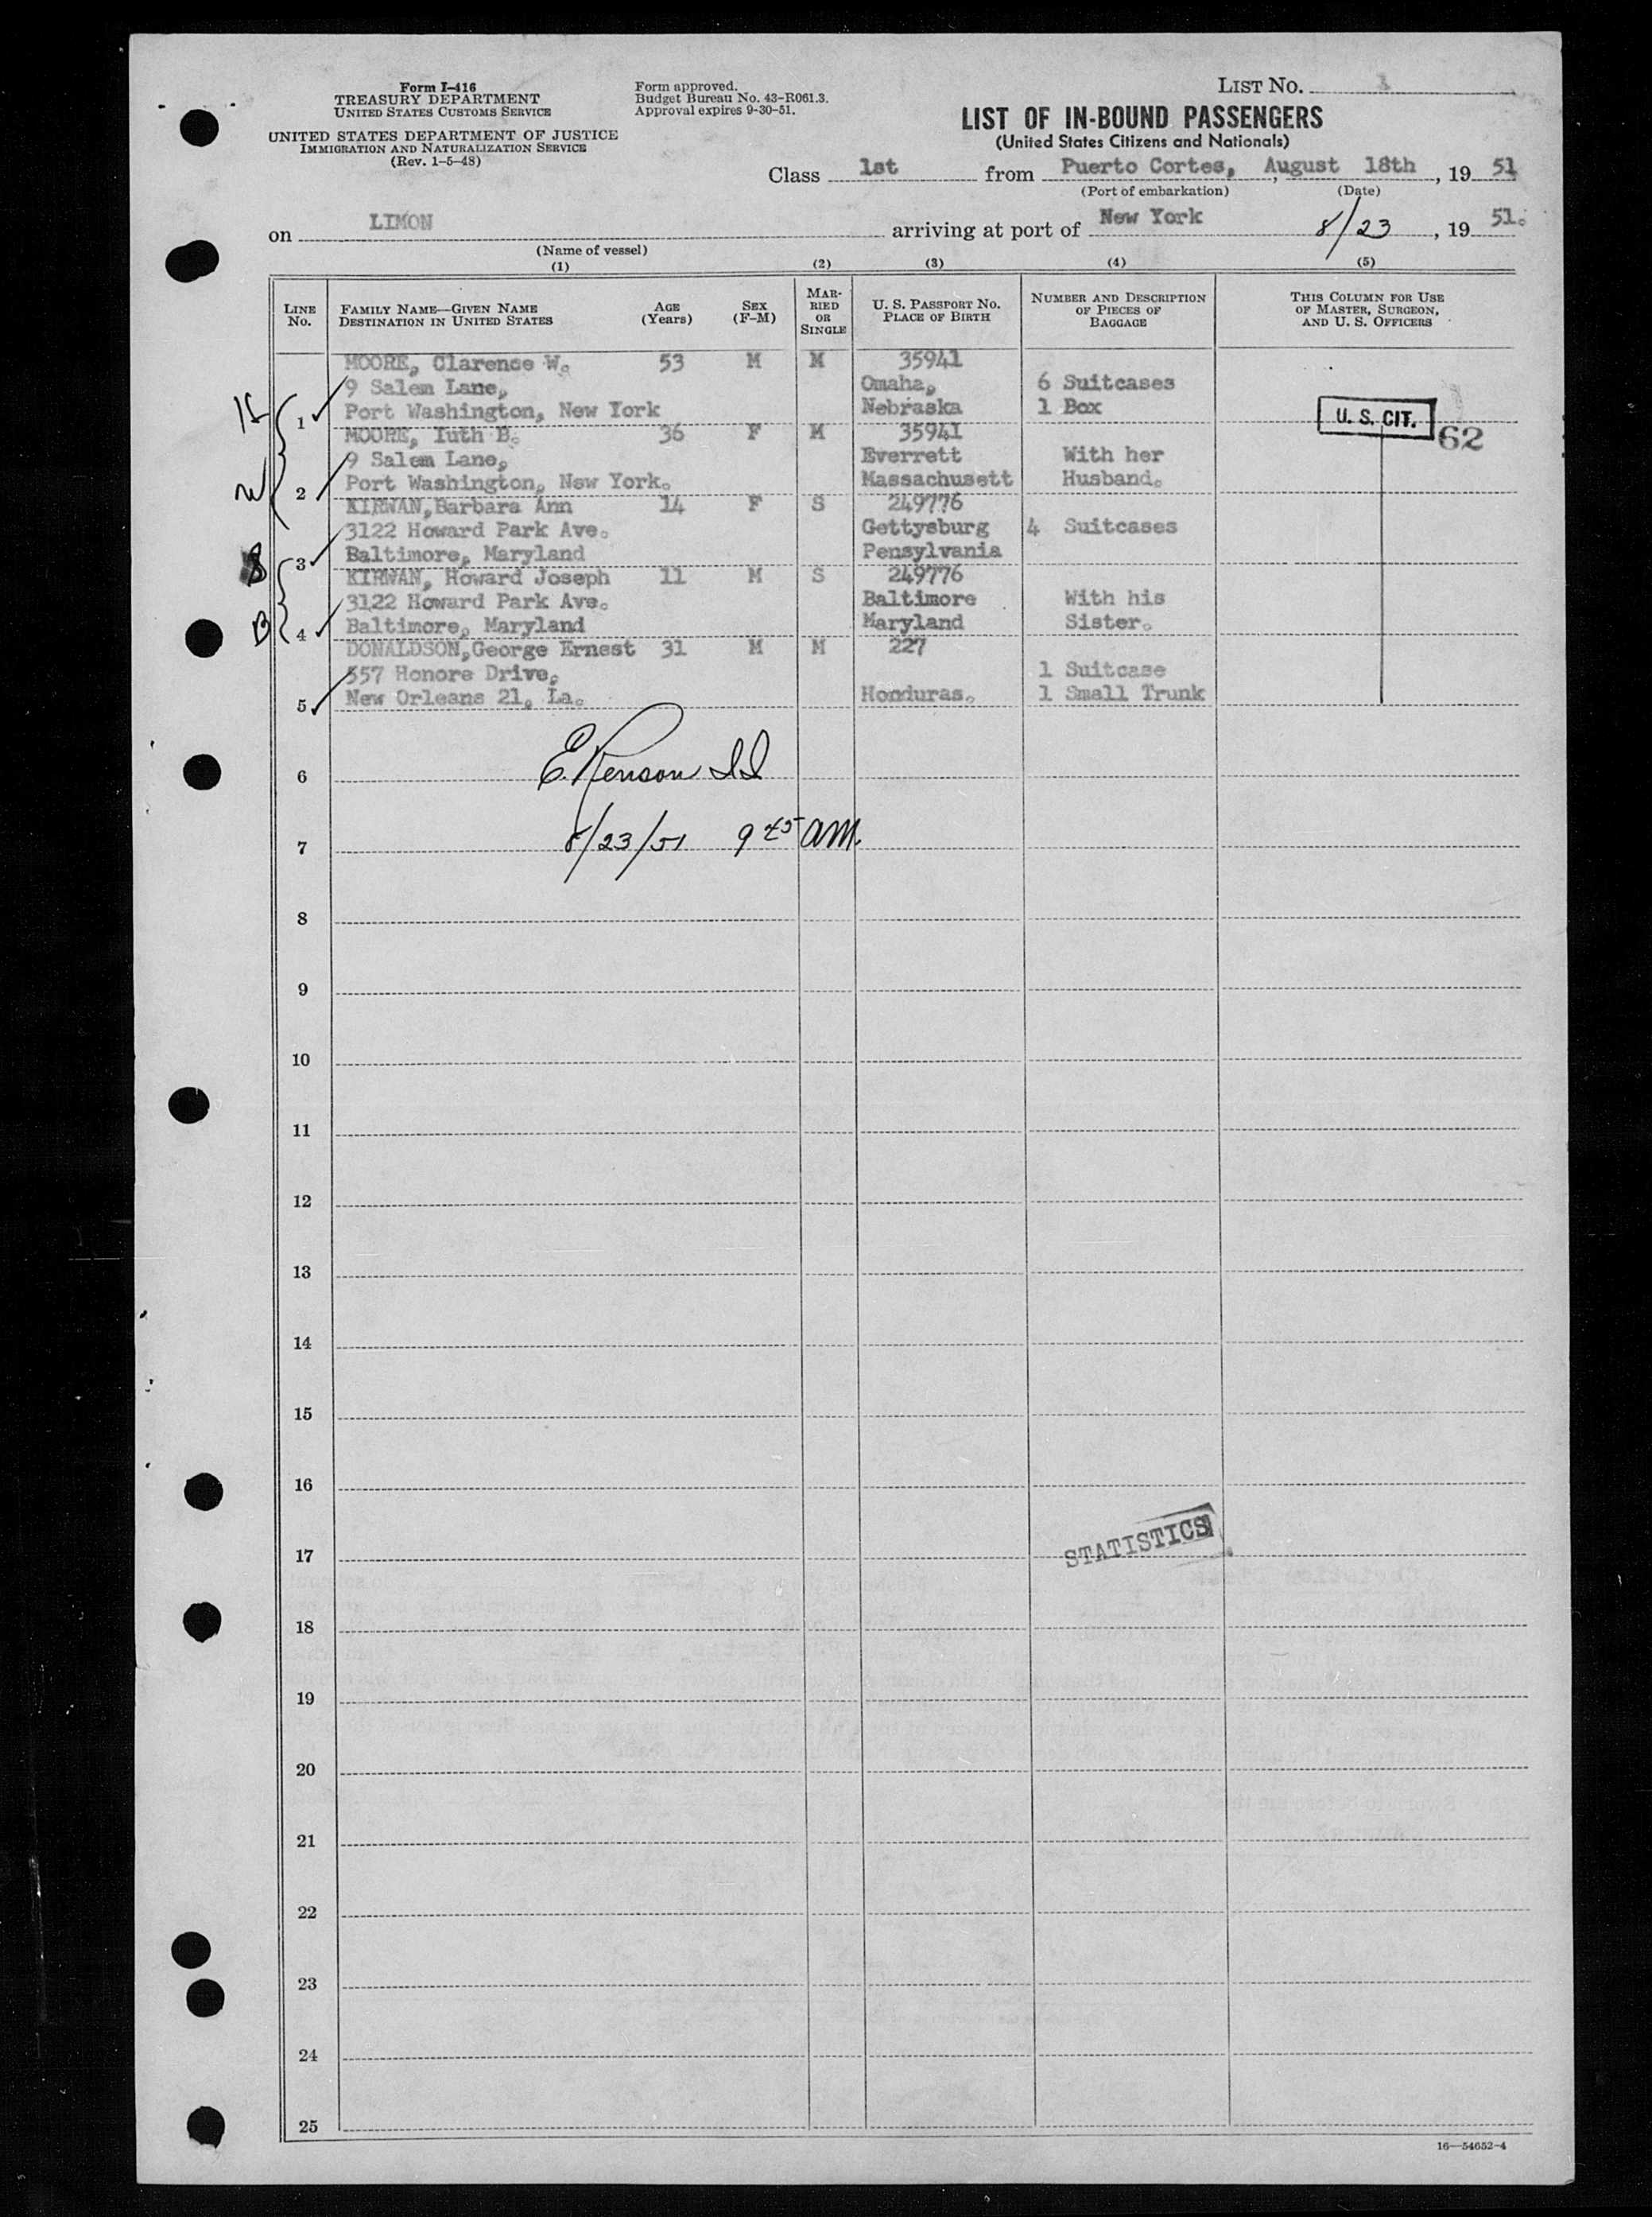 Form I-416
TREASURY DEPARTMENT
UNITED STATES CUSTOMS SERVICE
UNITED STATES DEPARTMENT OF JUSTICE
IMMIGRATION AND NATURALIZATION SERVICE
(Rev. 1-5-48)
Form approved.
Budget Bureau No. 43-R061.3.
Approval expires 9-30-51.
LIST No.
LIST OF IN-BOUND PASSENGERS
(United States Citizens and Nationals)
Class 1st from Puerto Cortes, August 18th, 19 51
(Port of embarkation) (Date)
on LIMON arriving at port of New York 8/23, 19 51.
(Name of vessel)
(1) (2) (3) (4) (5)
LINE No. FAMILY NAME—GIVEN NAME DESTINATION IN UNITED STATES AGE (Years) SEX (F-M) MARRIED OR SINGLE U. S. PASSPORT No. PLACE OF BIRTH NUMBER AND DESCRIPTION OF PIECES OF BAGGAGE THIS COLUMN FOR USE OF MASTER, SURGEON, AND U. S. OFFICERS
MOORE, Clarence W. 53 M M 35941
9 Salem Lane, Omaha, 6 Suitcases
H 1 Port Washington, New York Nebraska 1 Box U. S. CIT. 62
MOORE, Iuth B. 36 F M 35941
9 Salem Lane, Everrett With her
W 2 Port Washington, New York. Massachusett Husband.
KIRWAN, Barbara Ann 14 F S 249776
3122 Howard Park Ave. Gettysburg 4 Suitcases
S 3 Baltimore, Maryland Pensylvania
KIRWAN, Howard Joseph 11 M S 249776
3122 Howard Park Ave. Baltimore With his
B 4 Baltimore, Maryland Maryland Sister.
DONALDSON, George Ernest 31 M M 227
557 Honore Drive, 1 Suitcase
5 New Orleans 21, La. Honduras. 1 Small Trunk
6 E.
7 8/23/51 9 45 AM.
8
9
10
11
12
13
14
15
16
17 STATISTICS
18
19
20
21
22
23
24
25
16—54652-4